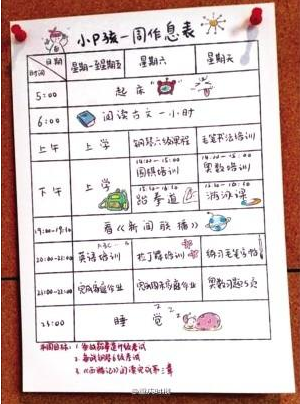 小P孩一周作息表
日期 时间 星期一至星期五 星期六 星期天
5:00 起床
6:00 阅读古文一小时
上午 上学 钢琴六级课程 毛笔书法培训
下午 上学 围棋培训 奥数培训
跆拳道 游泳课
19:00-19:30 看《新闻联播》
20:00-21:00 英语培训 拉丁舞培训 练习毛笔字帖
21:00-22:00 完成家庭作业 完成周末家庭作业 奥数习题5页
23:00 睡觉
本周目标：1. 备战跆拳道升级考试
2. 备战钢琴6级考试
3.《西游记》阅读完成第三章